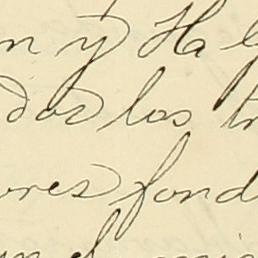 n y Ha
dos los tr
ores fond